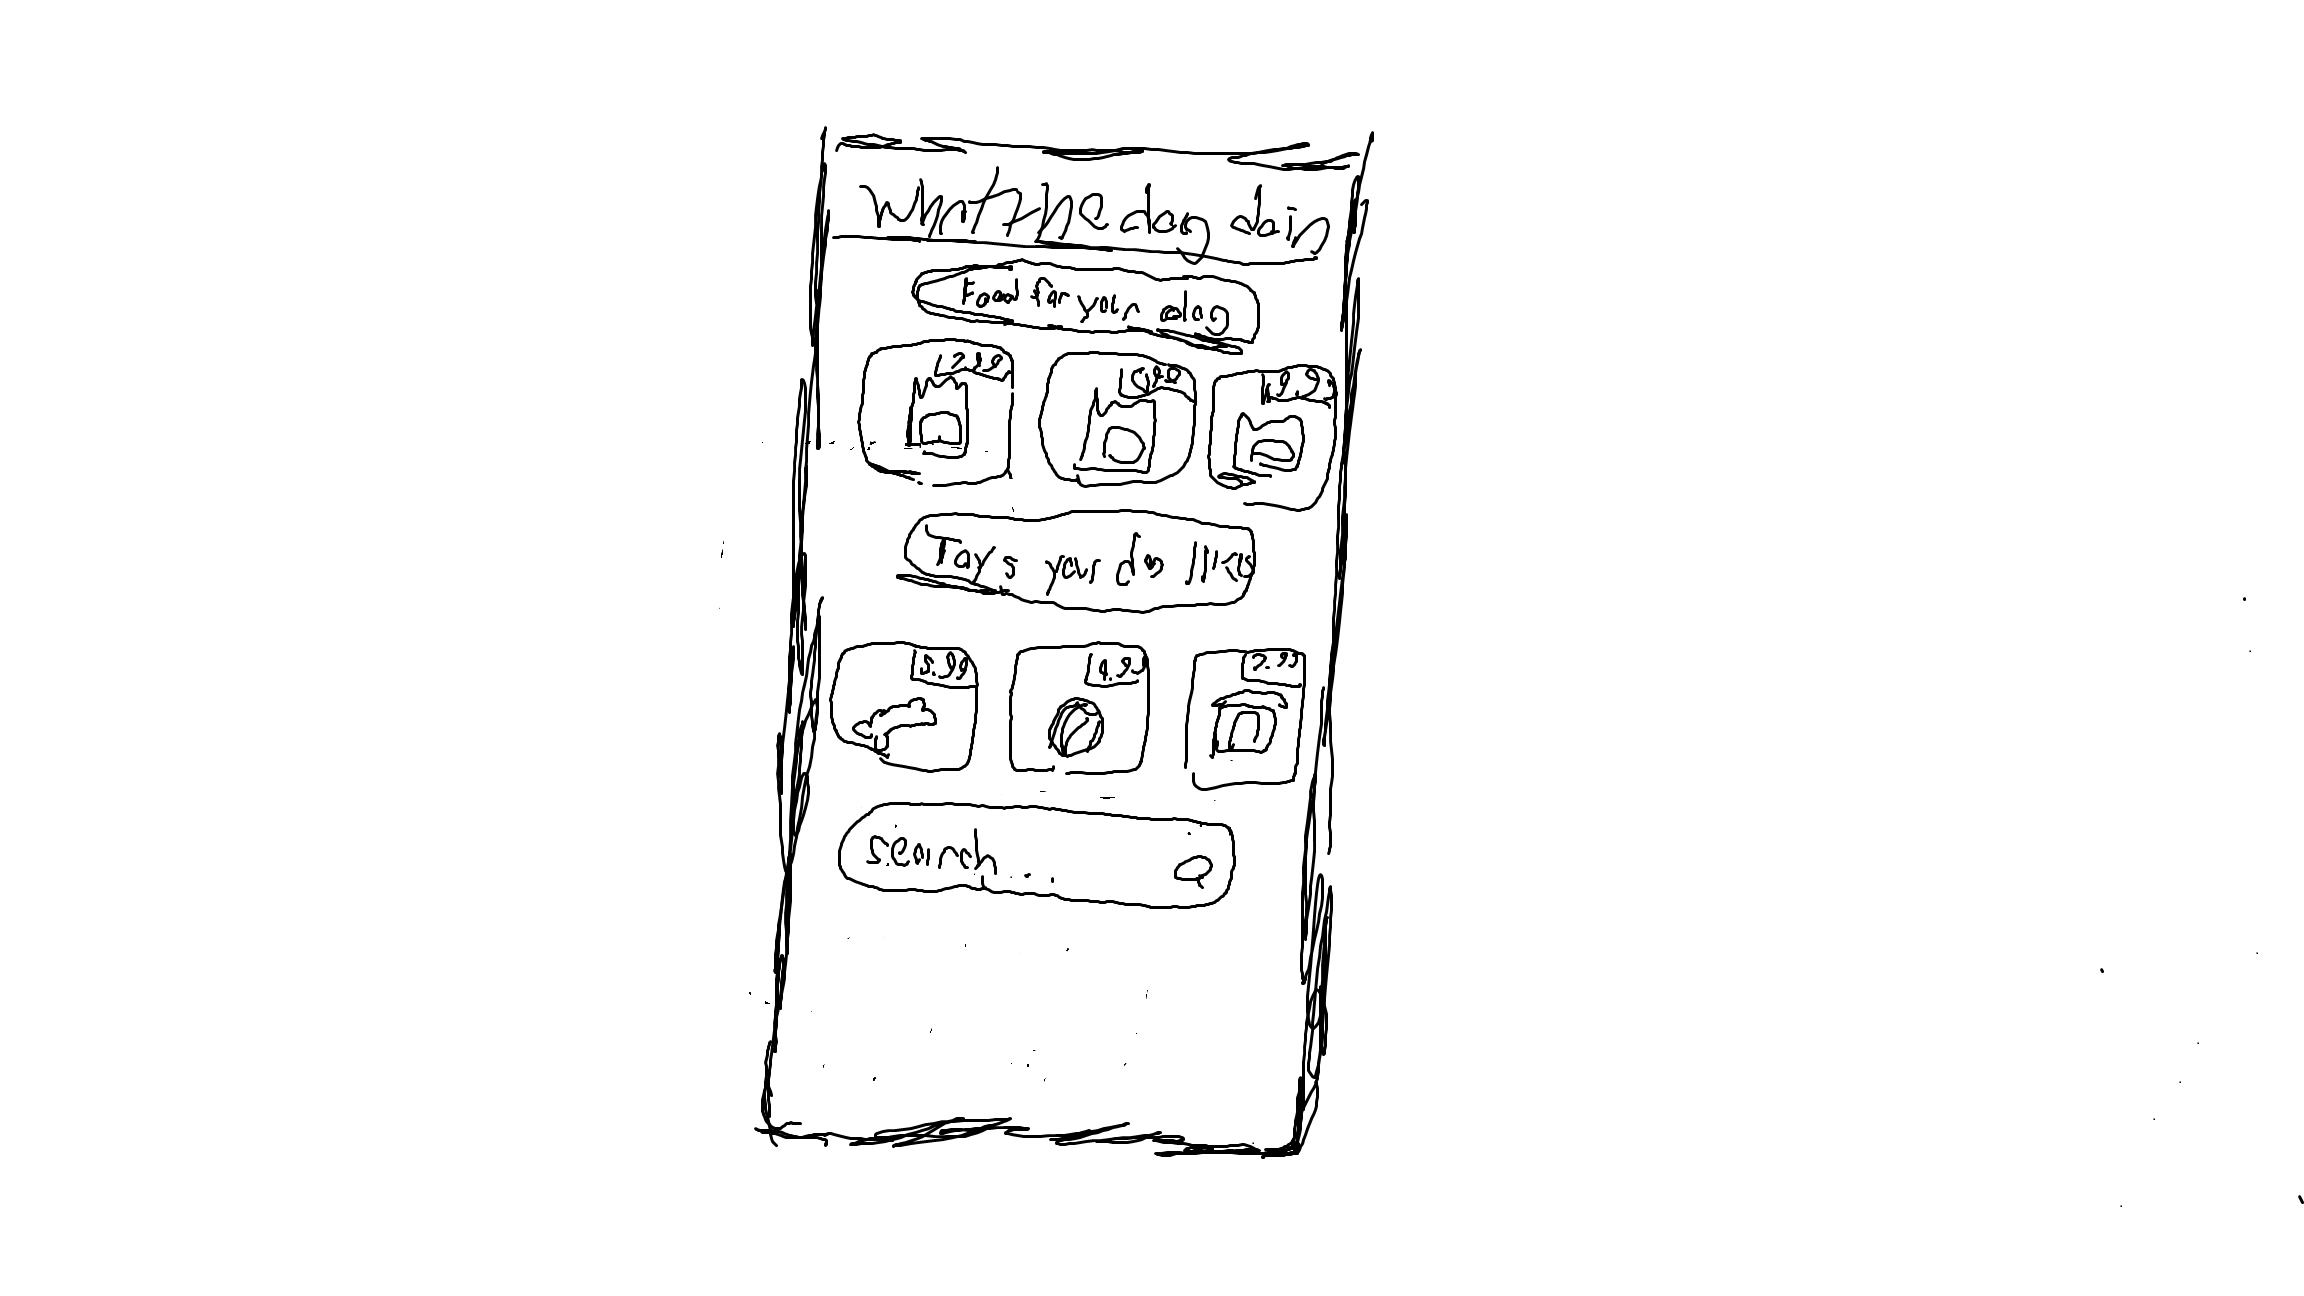 What the dog doin
Food for your dog
7.99
9.99
Toys your dog likes
5.99 4.99 7.99
search...